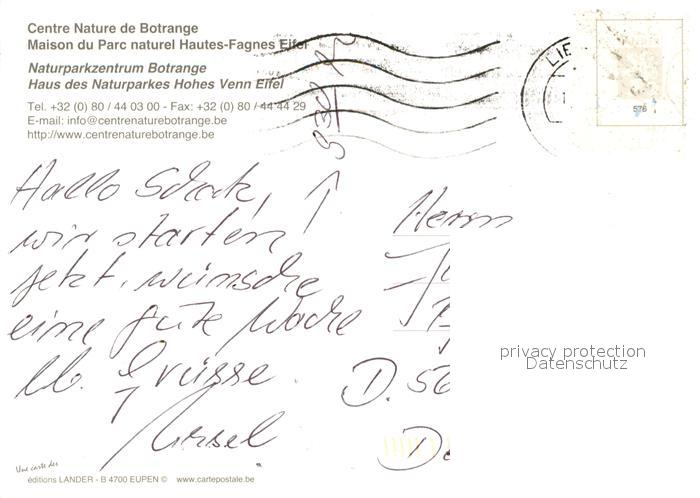 Centre Nature de Botrange
Maison du Parc naturel Hautes-Fagnes Eifel
Naturparkzentrum Botrange
Haus des Naturparkes Hohes Venn Eifel
Tel. +32 (0) 80 / 44 03 00 - Fax: +32 (0) 80 / 44 44 29
E-mail: info@centrenaturebotrange.be
http://www.centrenaturebotrange.be
LIE
576
Hallo Schatz,
wir starten
jetzt. wünsche
eine gute Woche
lb. Grüsse.
Ursel
Herrn
D. 56
privacy protection
Datenschutz
Une carte des
éditions LANDER - B 4700 EUPEN © www.cartepostale.be